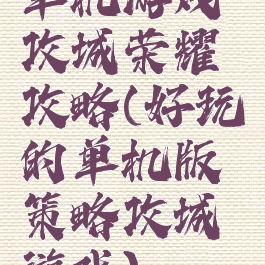 单机游戏
攻城荣耀
攻略(好玩
的单机版
策略攻城
游戏)